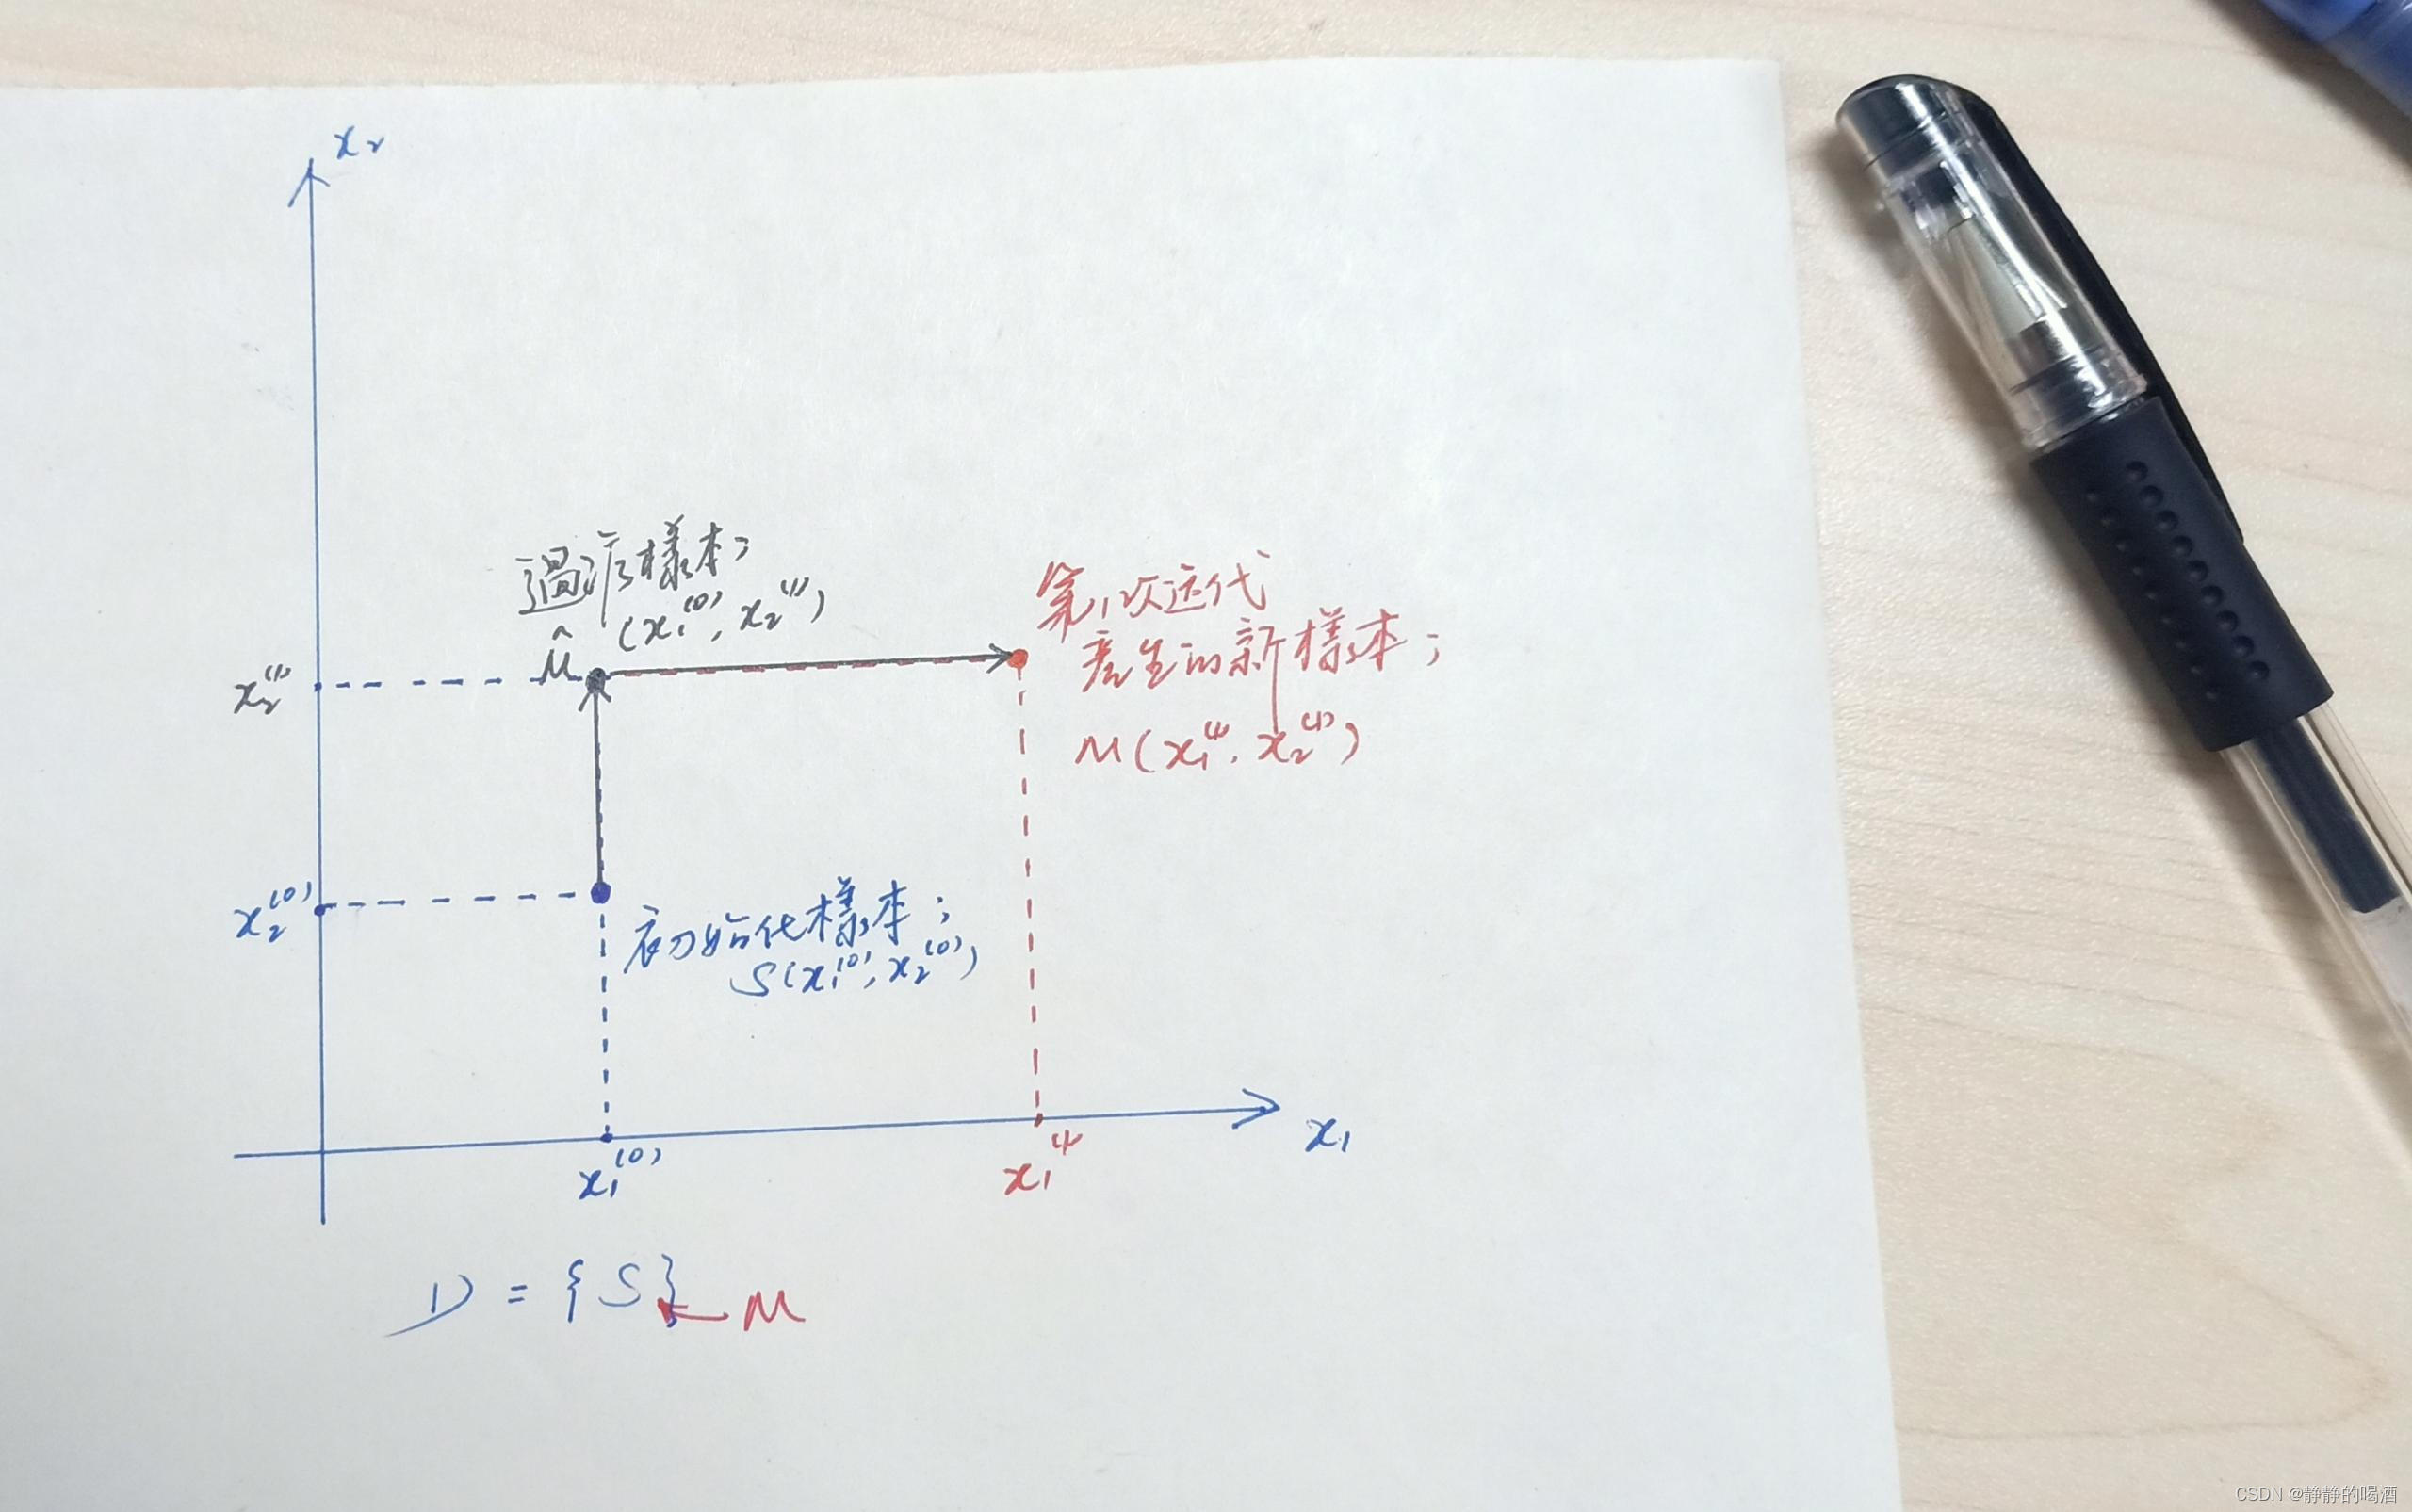 x₂
過渡樣本;
(x₁⁽⁰⁾, x₂⁽¹⁾)
M̂
第1次迭代
產生的新樣本;
M(x₁⁽¹⁾, x₂⁽¹⁾)
x₂⁽¹⁾
x₂⁽⁰⁾
初始化樣本;
S(x₁⁽⁰⁾, x₂⁽⁰⁾)
x₁⁽⁰⁾
x₁⁽¹⁾
x₁
D = {S} ← M
CSDN @静静的喝酒